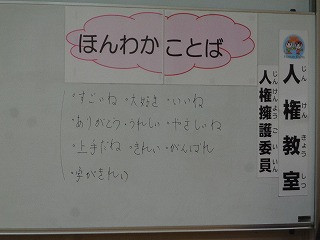 ほんわかことば
・すごいね ・大好き ・いいね
・ありがとう ・うれしい ・やさしいね
・上手だね ・きれい ・がんばれ
・字がきれい
人権教室
じんけんきょうしつ
人権擁護委員
じんけんようごいいん